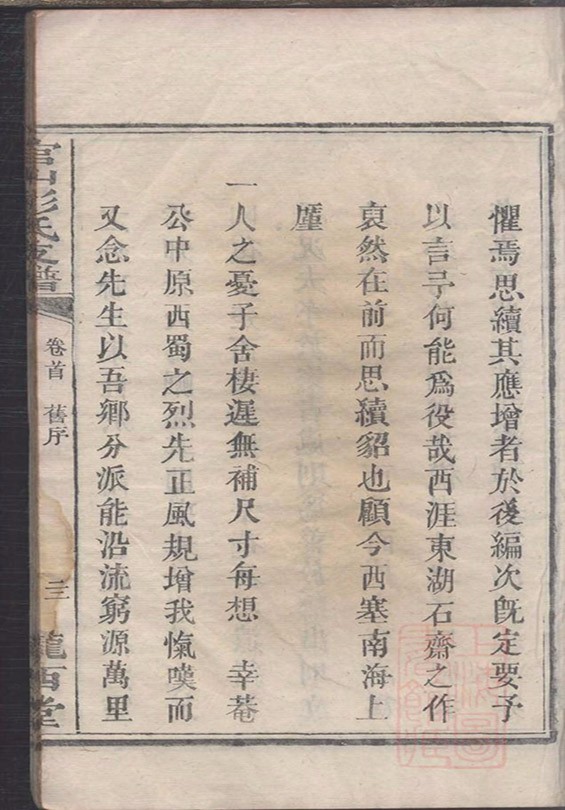 懼焉思續其應增者於後編次旣定要予
以言予何能爲役哉西涯東湖石齋之作
裒然在前而思續貂也顧今西塞南海上
廑
一人之憂子舍棲遲無補尺寸每想　幸菴
公中原西蜀之烈先正風規增我愾嘆而
又念先生以吾鄉分派能沿流窮源萬里
官山彭氏支譜
卷首　舊序
三
隴西堂